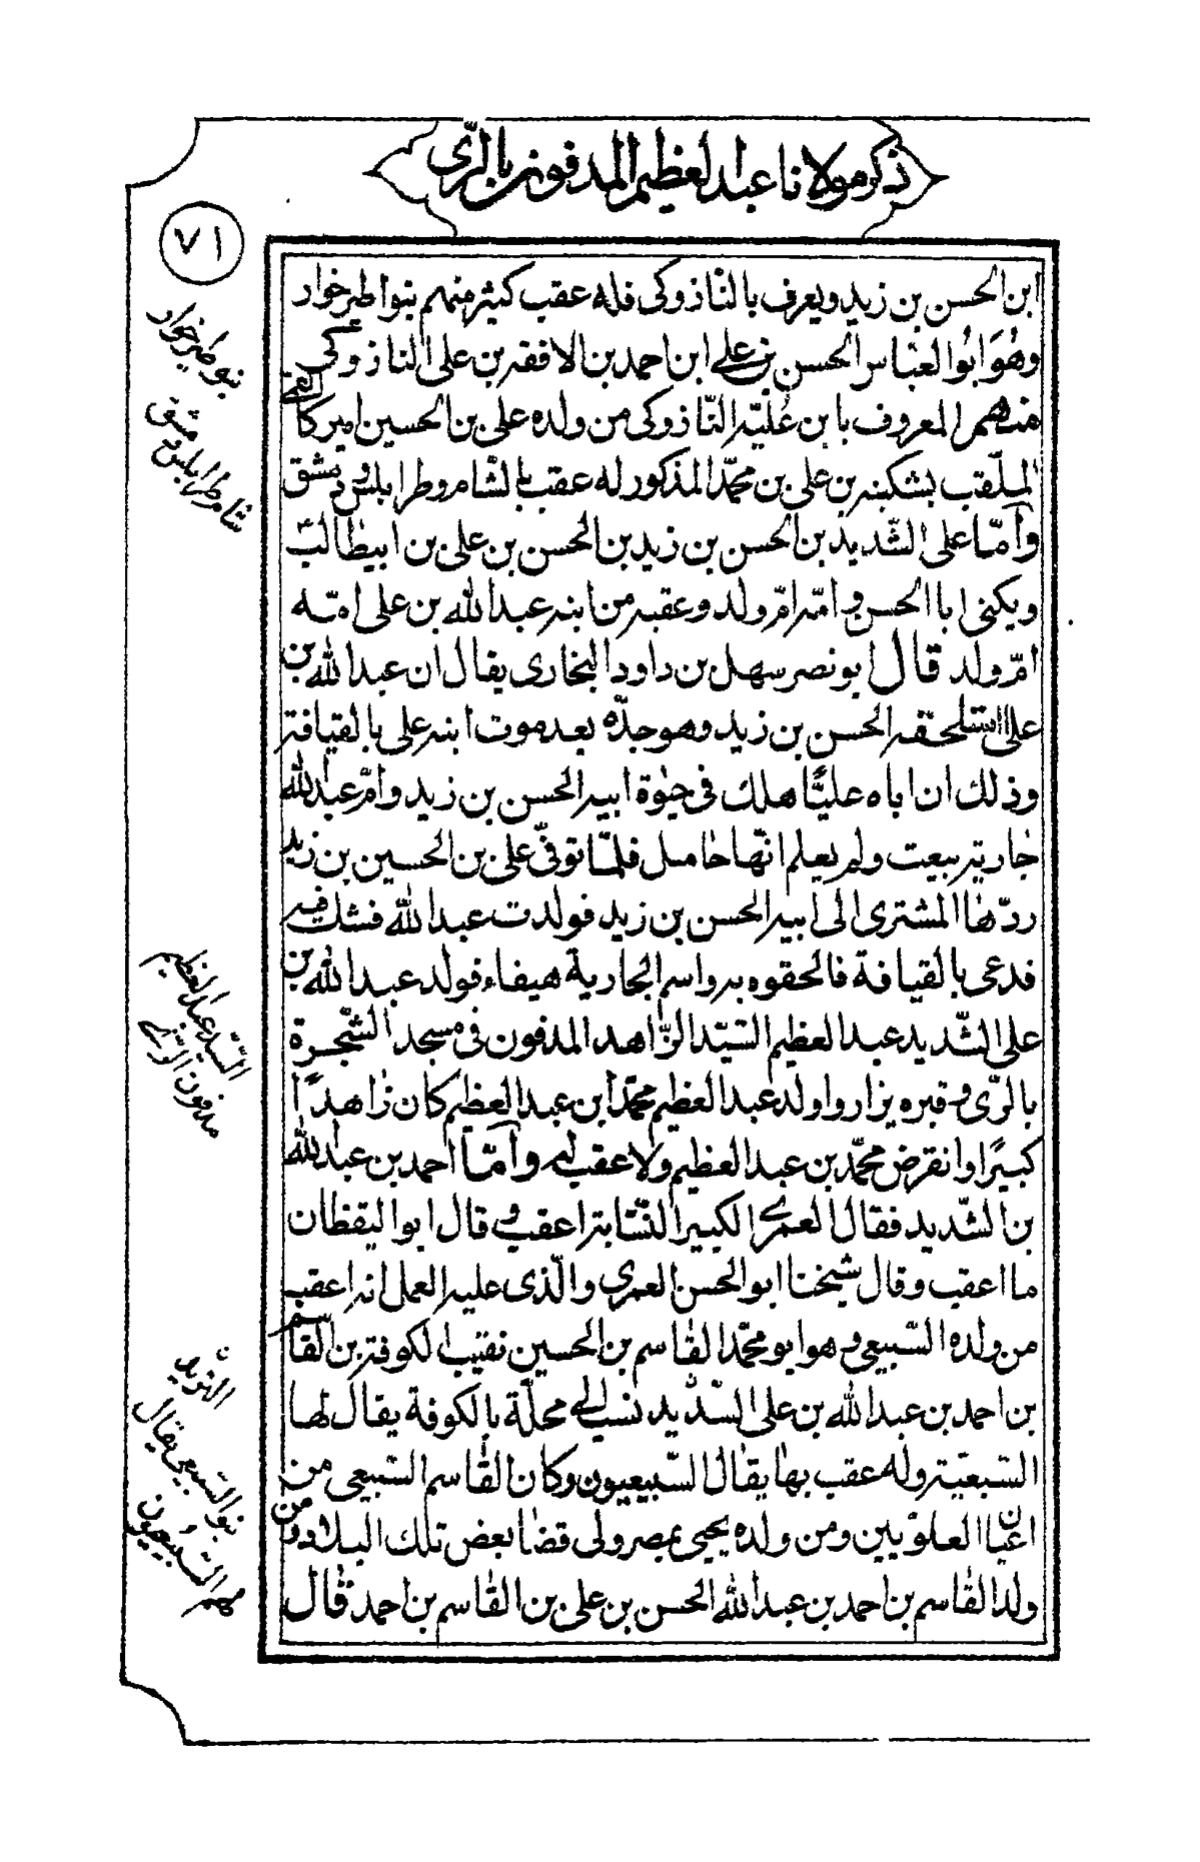 ذكر مولانا عبد العظيم المدفون بالرّى
٧١
ابن الحسن بن زيد ويعرف بالنازوكى فله عقب كثير منهم بنوا طير خوار
وهُوَ ابُوا العبّاس الحسن بن على ابن احمد بن الافقه بن على النازوكى
منهم المعروف بابن عُليّه النّازوكى من ولده على بن الحسين اميركا القمى
الملّقب بشكنبه بن على بن محمّد المذكور له عقب بالشام وطرابلس و دمشق
وامّا على الشّديد بن الحسن بن زيد بن الحسن بن على بن ابيطالبؑ
ويكنى ابا الحسن و امّه امّ ولد وعقبه من ابنه عبد الله بن على امّه
امّ ولد قال ابو نصر سهل بن داود البخارى يقال ان عبد الله بن
على استلحقه الحسن بن زيد وهو جدّه بعد موت ابنه على بالقيافة
وذلك ان اباه عليًّا هلك فى حيٰوة ابيه الحسن بن زيد وامّ عبد الله
جارية بيعت ولم يعلم انّها حامل فلمّا توفّى على بن الحسين بن زيد
ردّها المشترى الى ابيه الحسن بن زيد فولدت عبد الله فشك فيه
فدعى بالقيافة فالحقوه به واسم الجارية هيفاء فولد عبد الله بن
على الشّديد عبد العظيم السّيّد الزّاهد المدفون فى مسجد الشّجرة
بالرّى و قبره يزار واولد عبد العظيم محمّد ابن عبد العظيم كان زاهدًا
كبيرًا وانقرض محمّد بن عبد العظيم ولا عقب له وامّا احمد بن عبد الله
بن الشّديد فقال العمرى الكبير النّسّابة اعقب و قال ابو اليقظان
ما اعقب وقال شيخنا ابو الحسن العمرى والّذى عليه العمل انه اعقب
من ولده السّبيعى و هو ابو محمّد القاسم بن الحسين نقيب الكوفة بن القاسم
بن احمد بن عبد الله بن على الشّديد نسب الى محلّة بالكوفة يقال لها
السّبيعيّة وله عقب بها يقال السّبيعيون وكان القاسم السّبيعى من
اعيان العلويّين ومن ولده يحيى بمصر ولى قضا بعض تلك البلاد ومن
ولد القاسم بن احمد بن عبد الله الحسن بن على بن القاسم بن احمد قال
بنو طير خوار
شام طرابلس دمشق
السّيّد عبد العظيم
مدفون الرّى
بنو السّبيعى يقال
لهم السّبيعيون